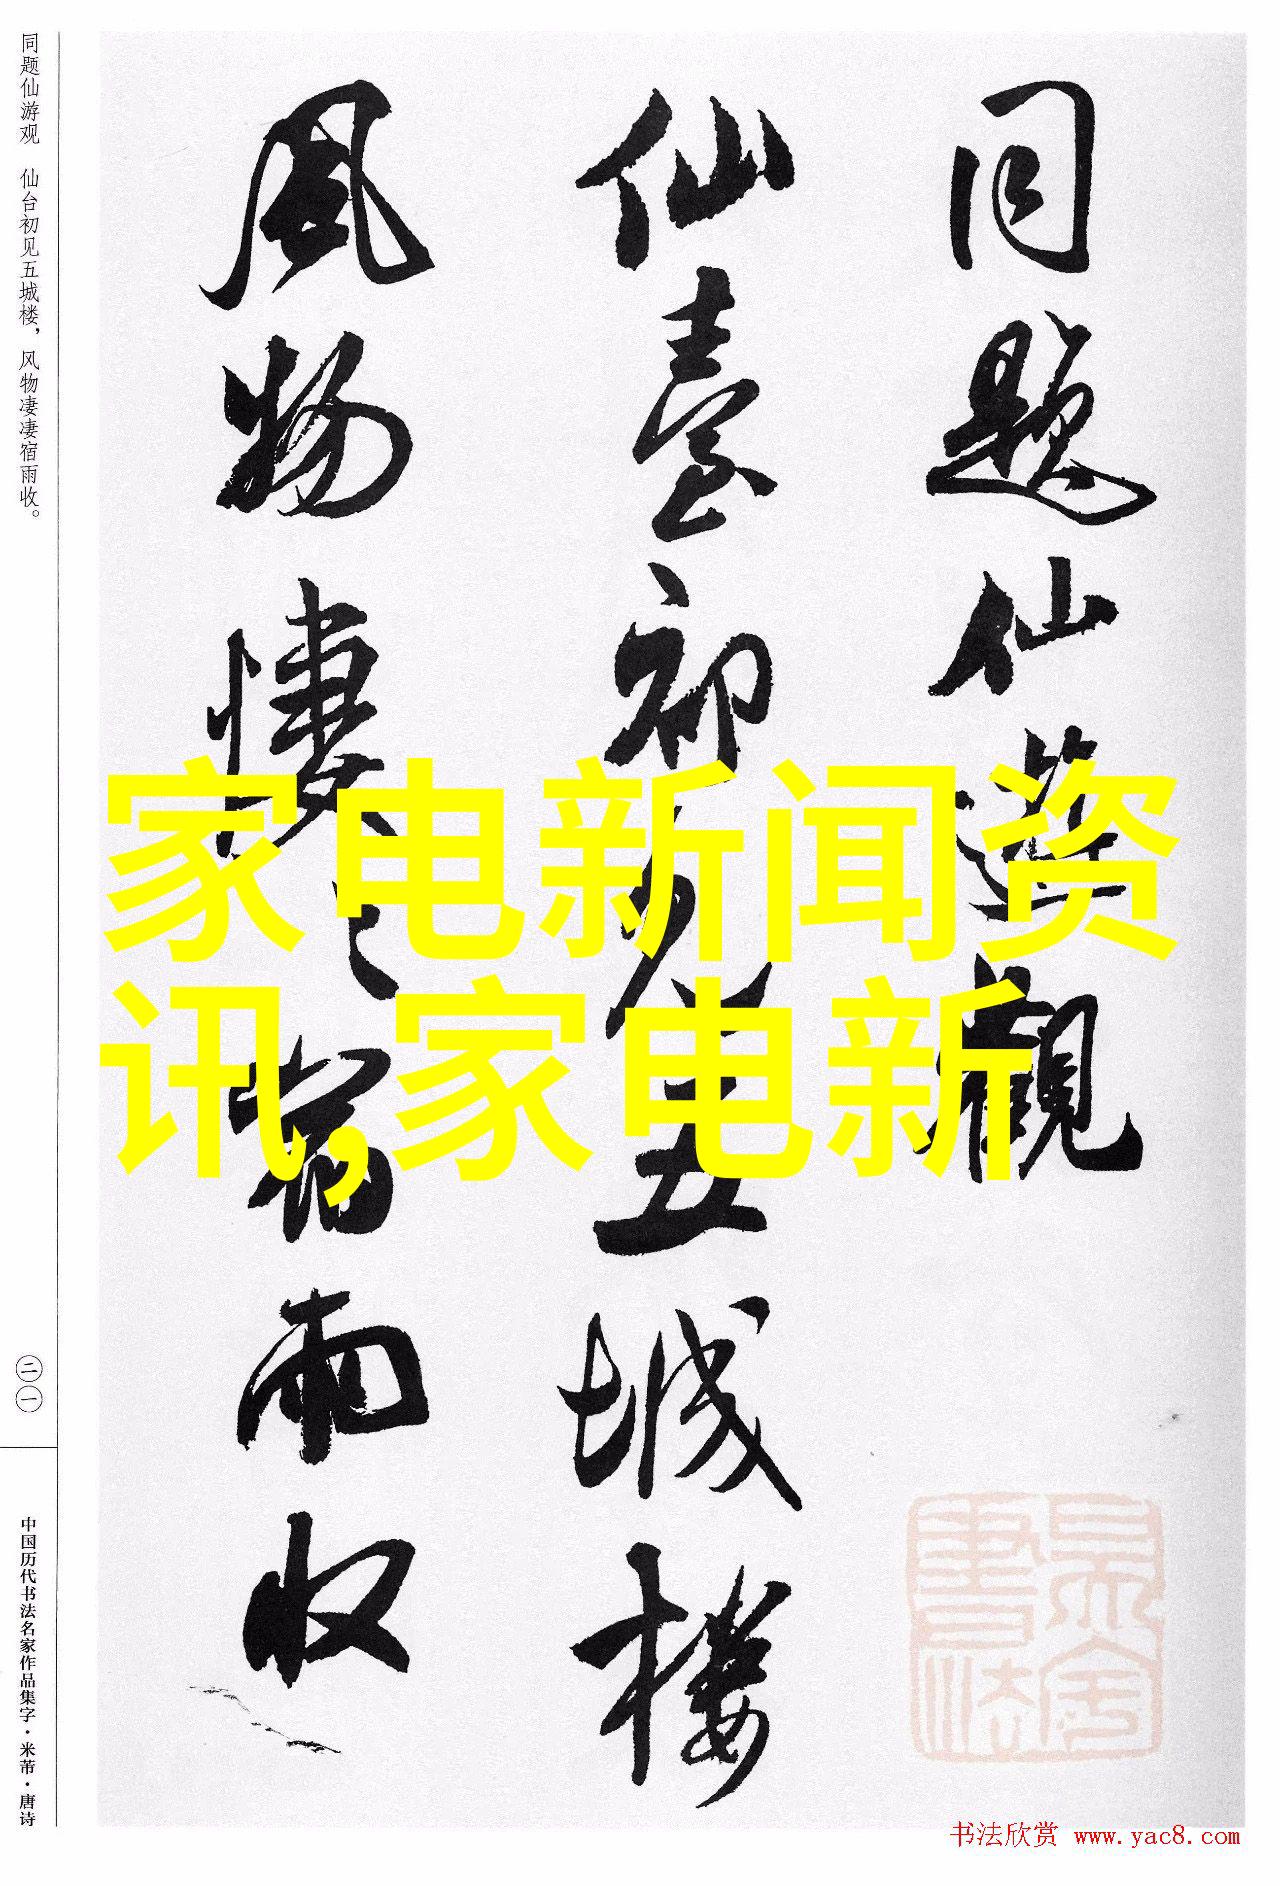 同题仙游观 仙台初见五城楼，风物凄凄宿雨收。
同題仙遊觀
仙臺初見五城樓
風物悽々宿雨收
家电新闻资
讯,家电新
二一
中国历代书法名家作品集字·米芾·唐诗
书法欣赏 www.yac8.com